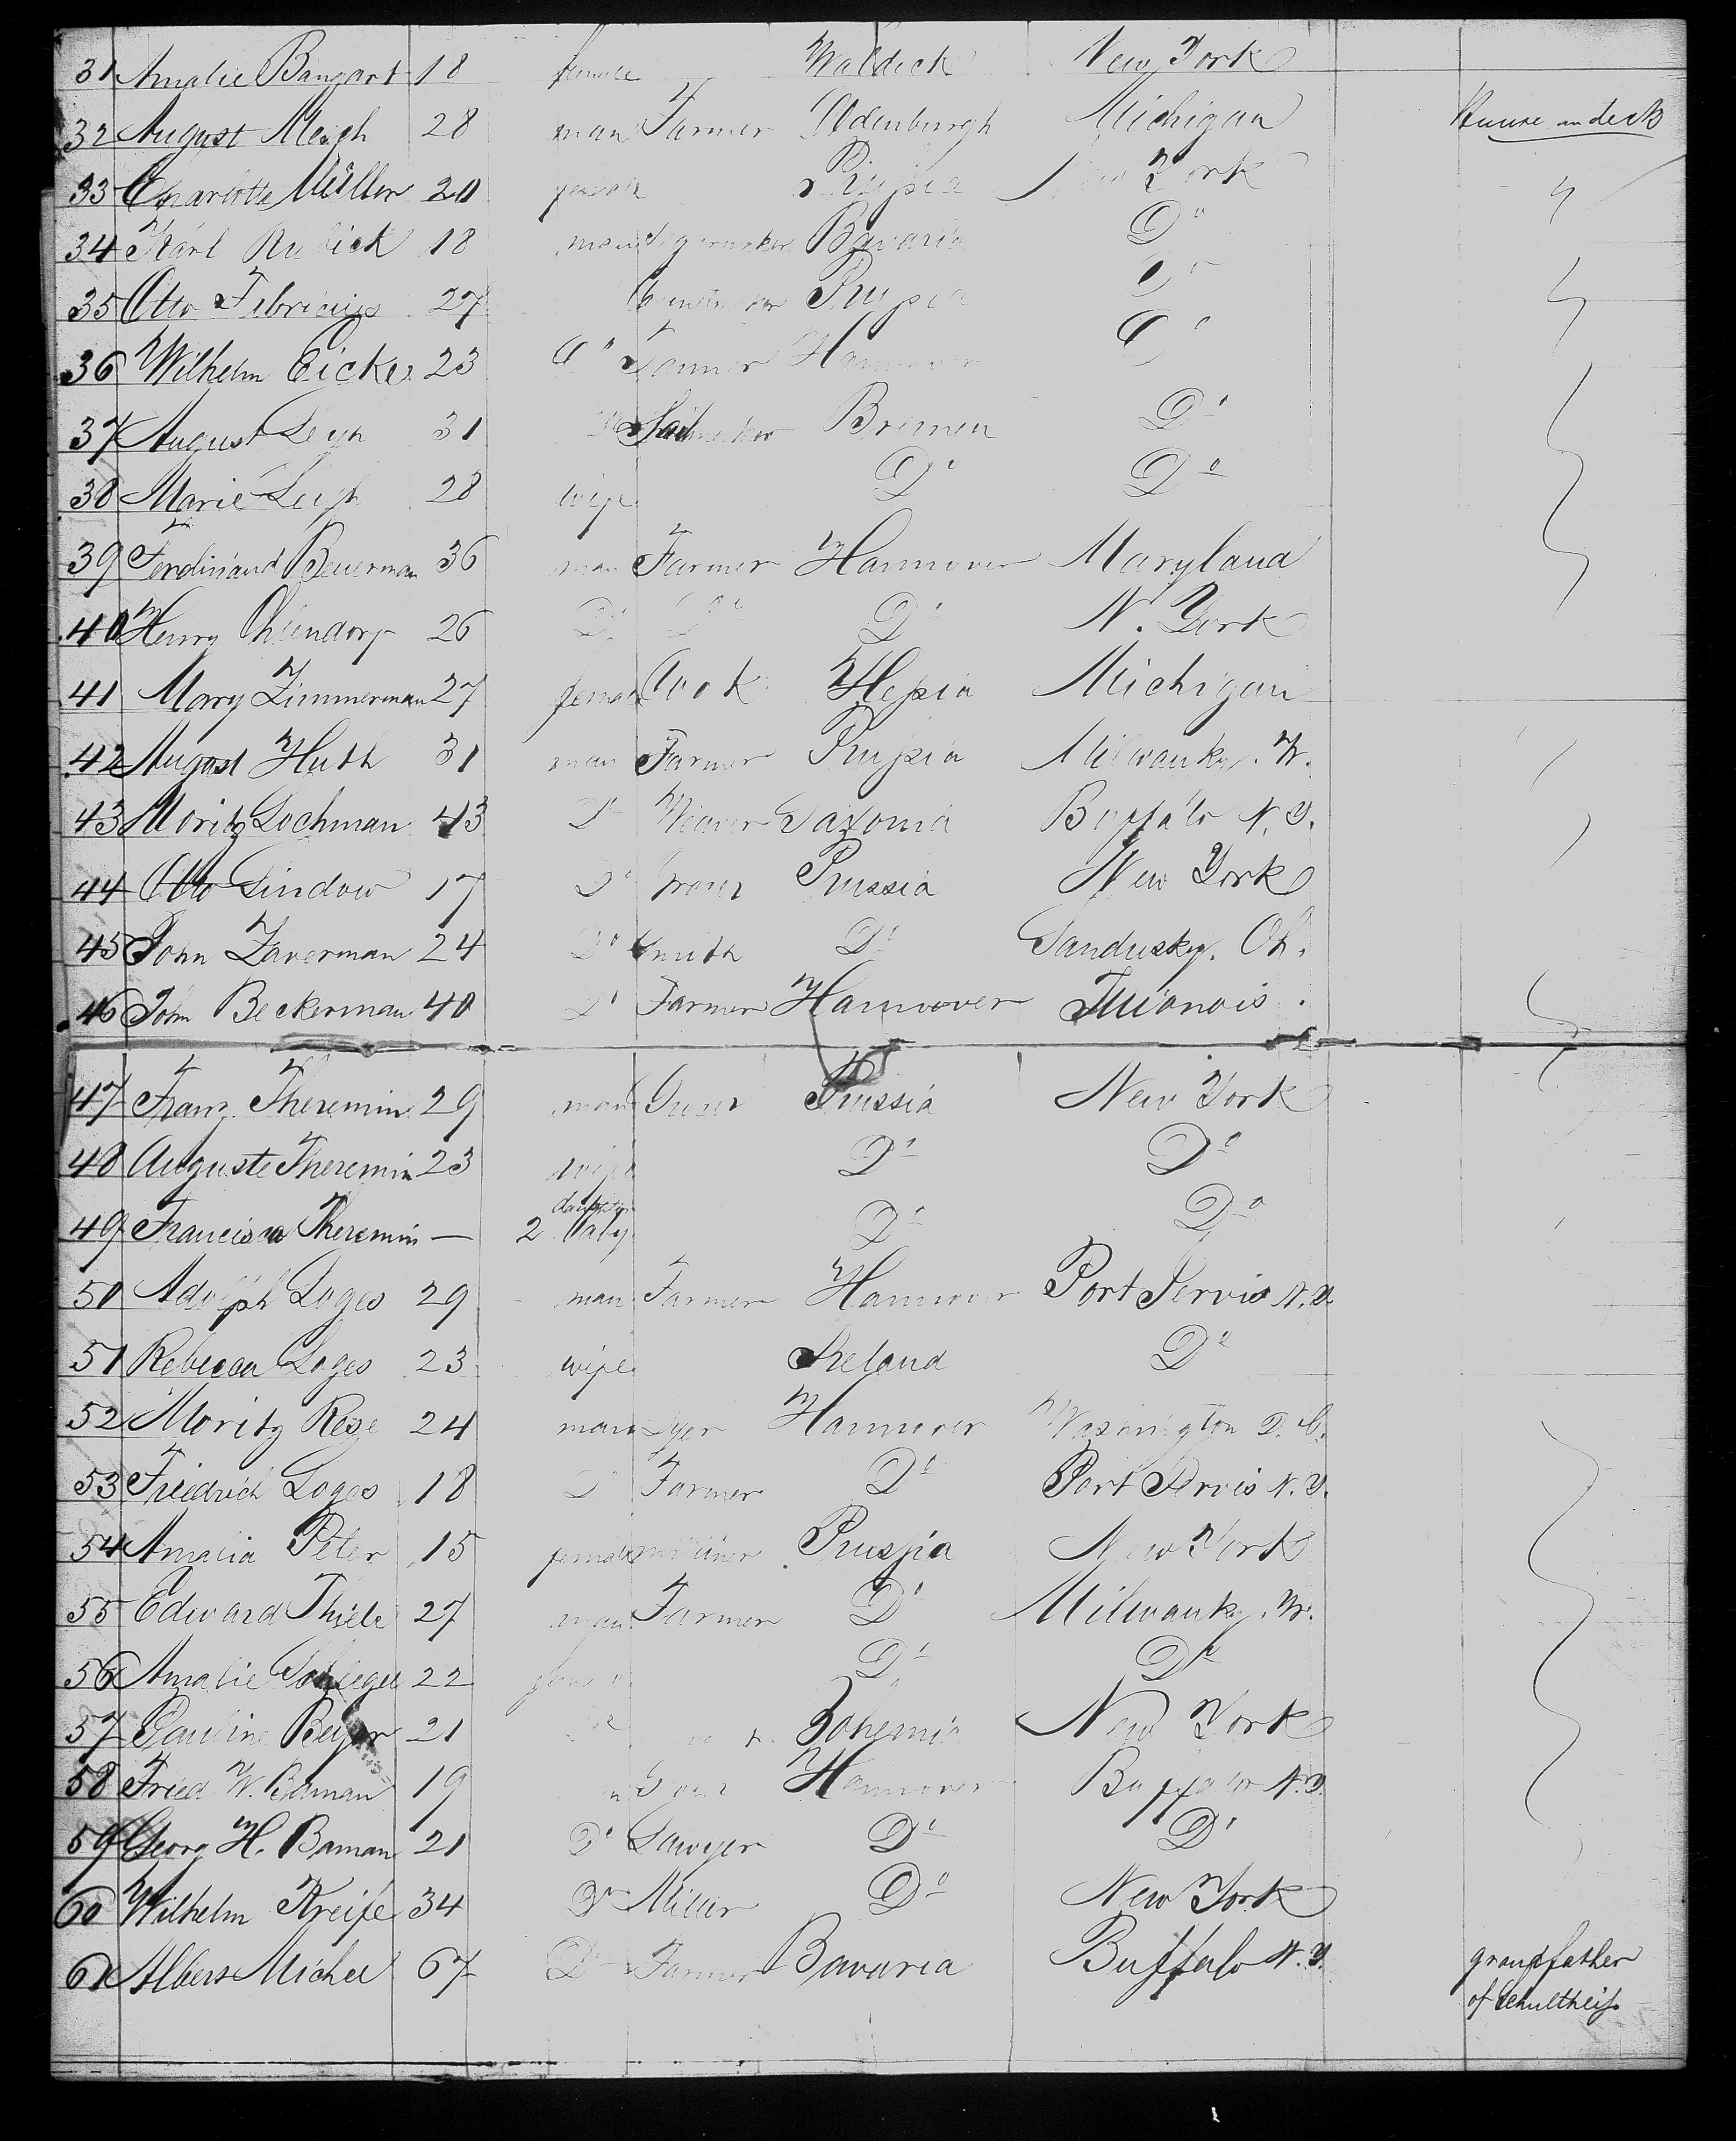 31 Amalie Bangart 18 female Waldeck New York
32 August 28 man Farmer Oldenburgh Michigan House on deck
33 Charlotte Müller 20 female Prussia New York
34 Karl 18 man Bavaria Do
35 Otto Febricius 27 Prussia Do
36 Wilhelm Eicke 23 Do Farmer Hannover Do
37 August Leyh 31 Do Sailmaker Bremen Do
38 Marie Leyh 28 wife Do Do
39 Ferdinand Beuerman 36 man Farmer Hannover Maryland
40 Henry Ohlendorf 26 Do Do Do N. York
41 Mary Zimmerman 27 female Cook Hessia Michigan
42 August Huth 31 man Farmer Prussia Milwauky. W.
43 Moritz Lochman 43 Do Weaver Saxonia Buffalo N. Y.
44 Otto Lindow 17 Do Prussia New York
45 John Zaverman 24 Do Smith Do Sandusky. Oh.
46 John Beckerman 40 Do Farmer Hannover Illionois.
47 Franz Theremin 29 man Prussia New York
48 Auguste Theremin 23 wife Do Do
49 Francisca Theremin — 2 daughter baby Do Do
50 Adolph Loges 29 man Farmer Hannover Port Jervis N. Y.
51 Rebecca Loges 23 wife Ireland Do
52 Moritz Rose 24 man Hannover Washington D. C.
53 Friedrich Loges 18 Do Farmer Do Port Jervis N. Y.
54 Amalia Peter 15 female milliner Prussia New York
55 Edward Thiele 27 man Farmer Do Milwauky. W.
56 Amalie 22 female Do Do
57 Pauline Beyer 21 Do Bohemia New York
58 Fried W. Baman 19 Hannover Buffalo N. Y.
59 Georg H. Baman 21 Do Sawyer Do Do
60 Wilhelm Kreife 34 Do Miller Do New York
61 Albers Michel 67 Do Farmer Bavaria Buffalo N. Y. grandfather
of Schultheiss